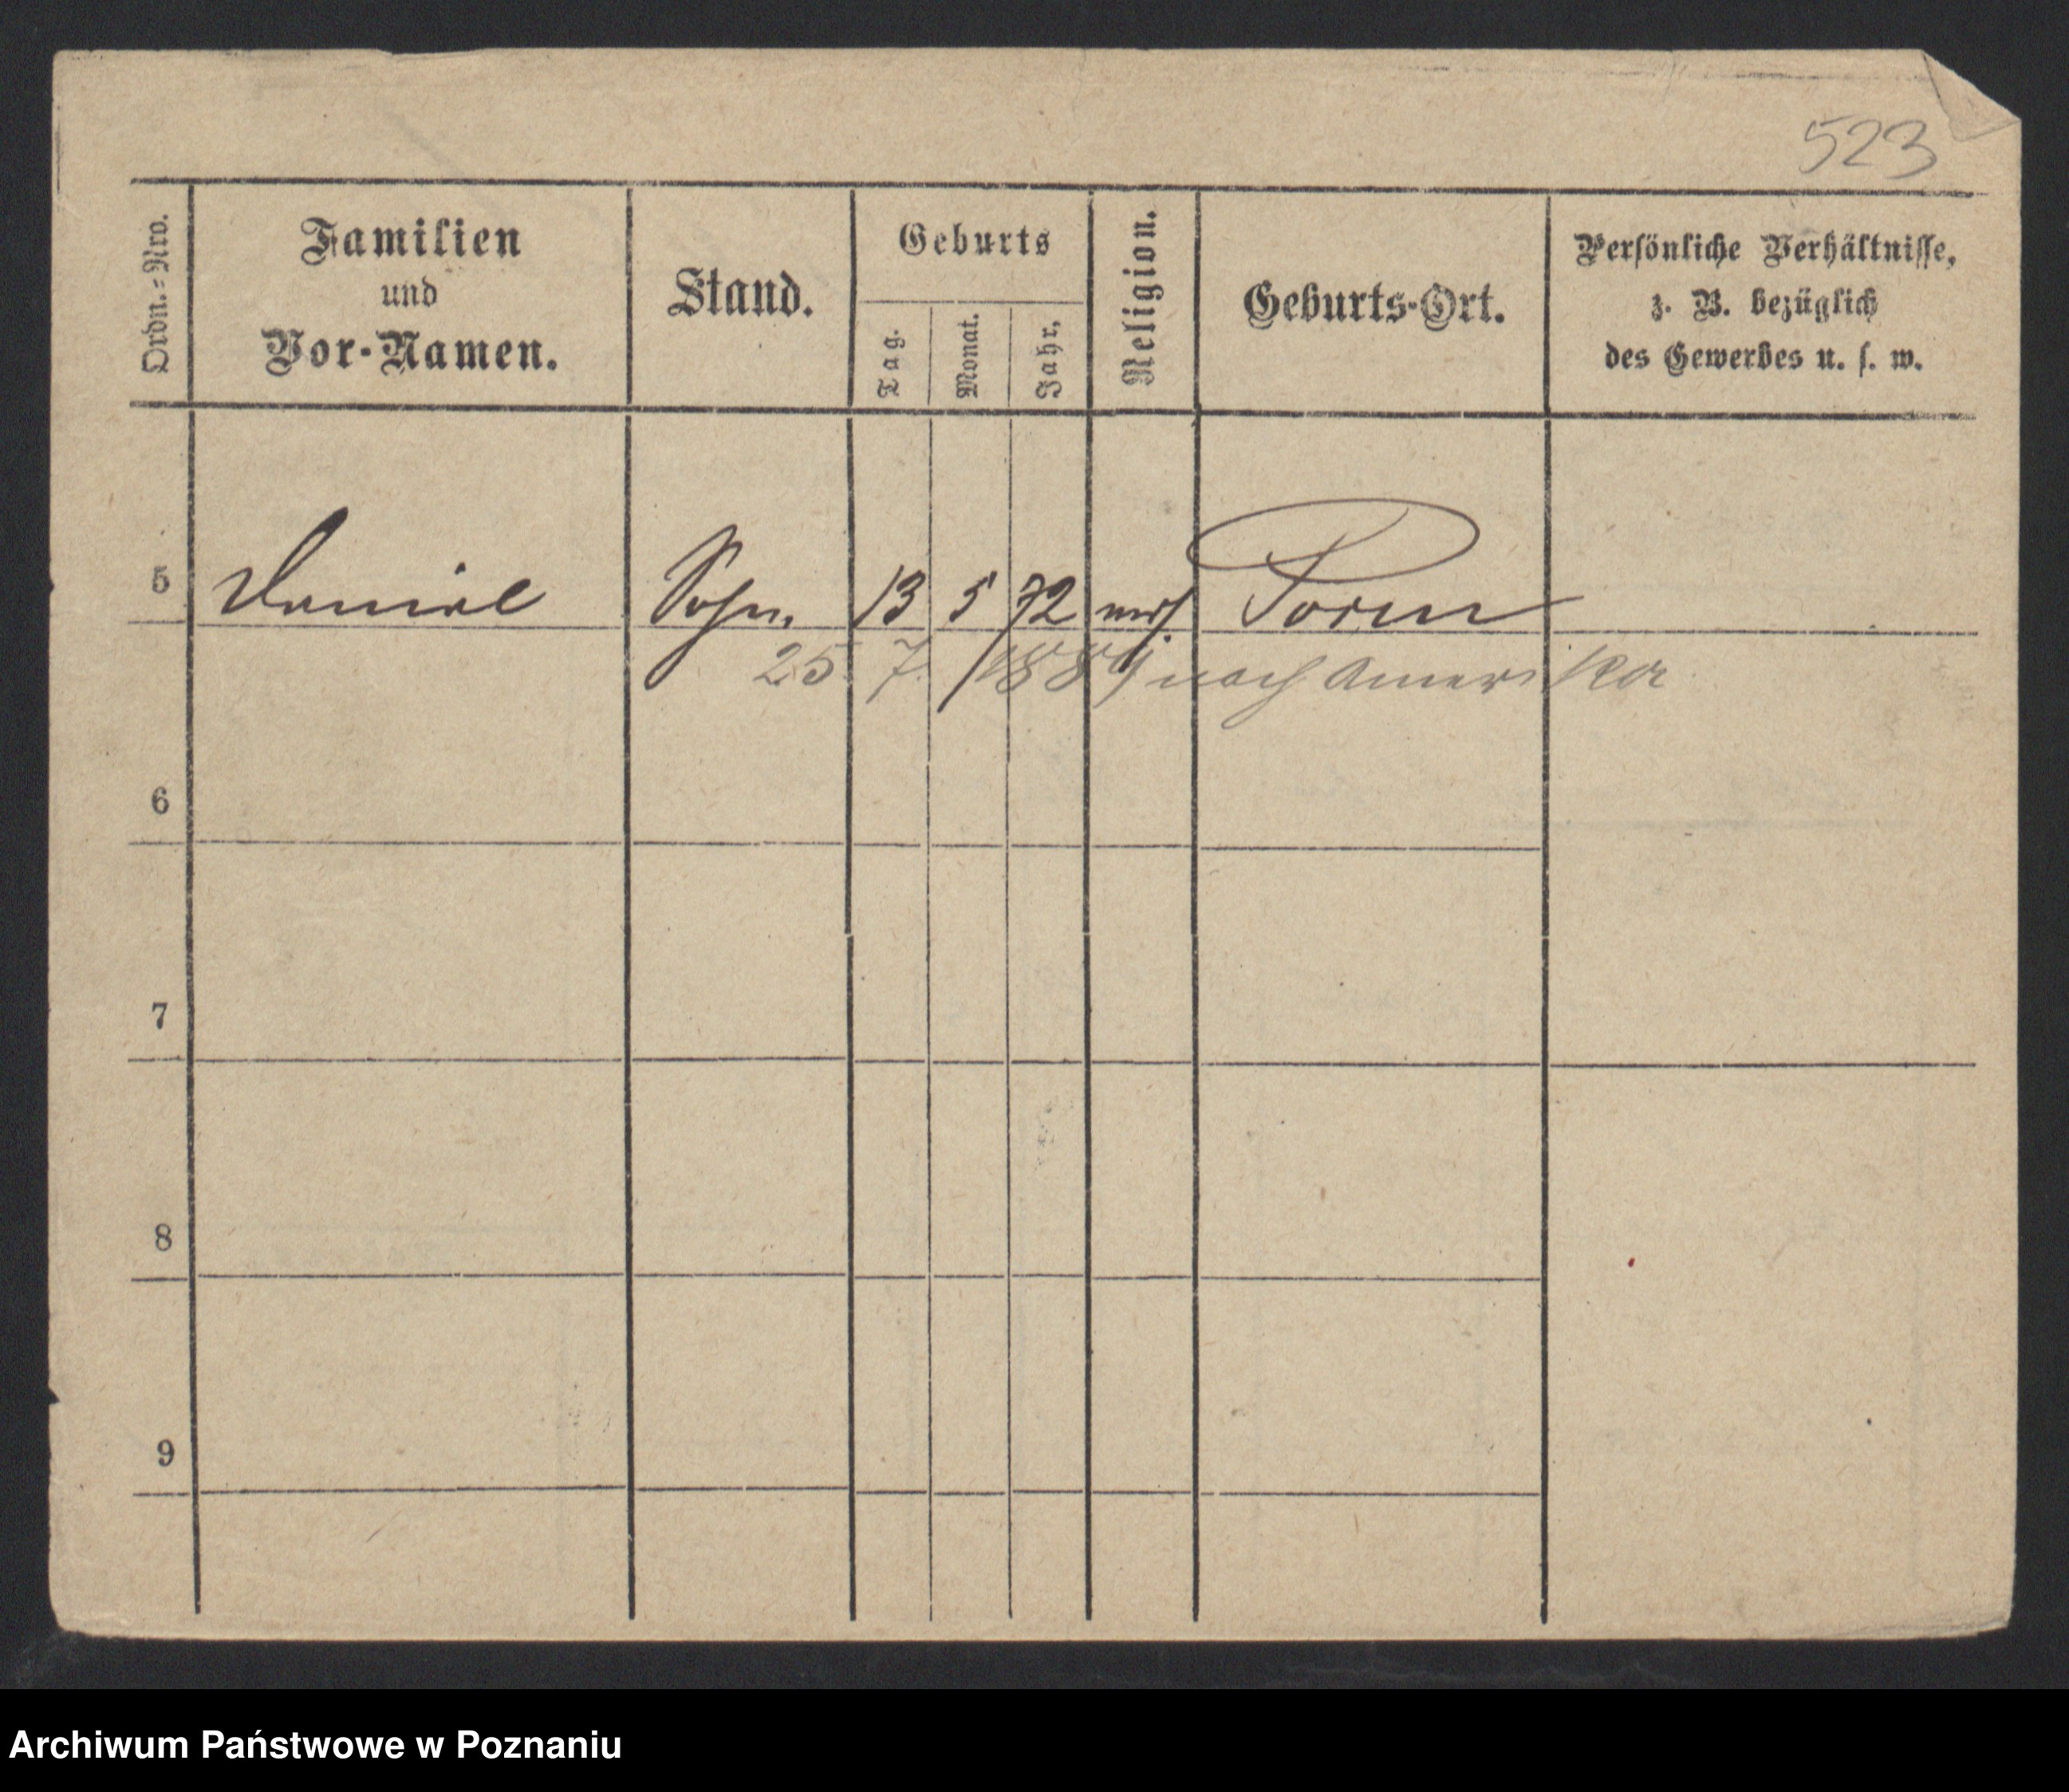 523
Ordn.-Nro.
Familien
und
Vor-Namen.
Stand.
Geburts
Tag.
Monat.
Jahr.
Religion.
Geburts-Ort.
Persönliche Verhältnisse,
z. B. bezüglich
des Gewerbes u. s. w.
5 Daniel Sohn 13 5 72 mos. Posen
25 7. 1889 nach Amerika
6
7
8
9
Archiwum Państwowe w Poznaniu